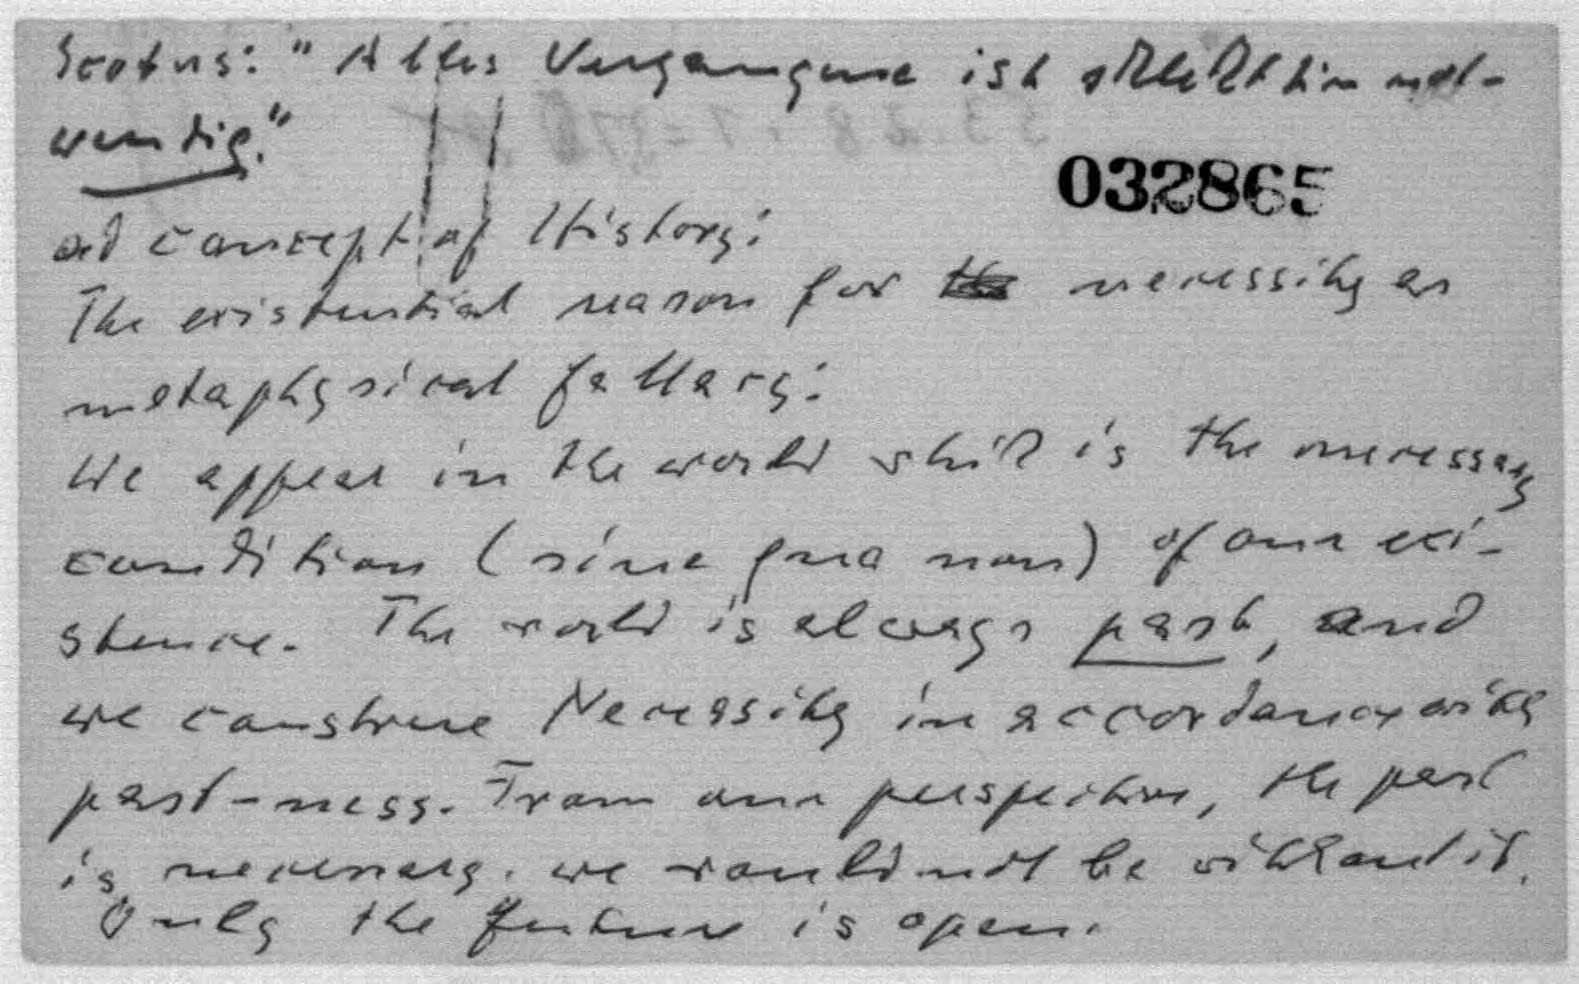 Scotus: "Alles Vergangene ist schlechthin not-
wendig."
032865
ad concept of History:
The existential reason for necessity as
metaphysical fallacy:
We appear in the world which is the necessary
condition (sine qua non) of our exi-
stence. The world is always past, and
we construe Necessity in accordance with
past-ness. From our perspective, the past
is necessary. we would not be without it.
Only the future is open.